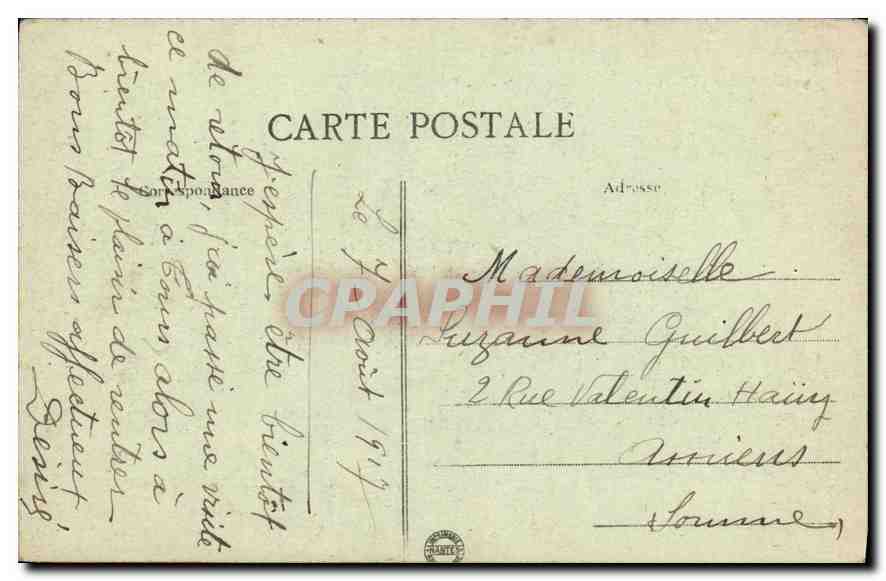 CARTE POSTALE
Correspondance
Adresse
Le 7 Août 1917
J'espère être bientôt
de retour, j'ai passé une visite
ce matin à Tours alors à
bientôt le plaisir de rentrer
Bons Baisers affectueux
Désiré
Mademoiselle
Suzanne Guilbert
2 Rue Valentin Haüy
Amiens
Somme
CPAPHIL
NANTES